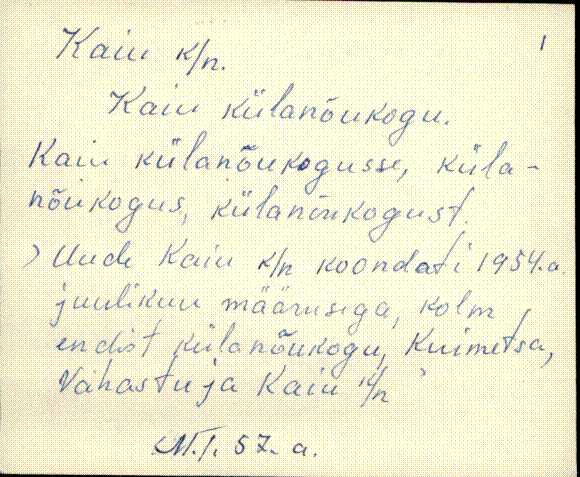 Kaiu k/n. 1
Kaiu külanõukogu.
Kaiu külanõukogusse, küla-
nõukogus, külanõukogust.
) Uude Kaiu k/n koondati 1954.a.
juulikuu määrusega, kolm
endist külanõukogu, Kuimetsa,
Vahastu ja Kaiu k/n
M.T. 57. a.